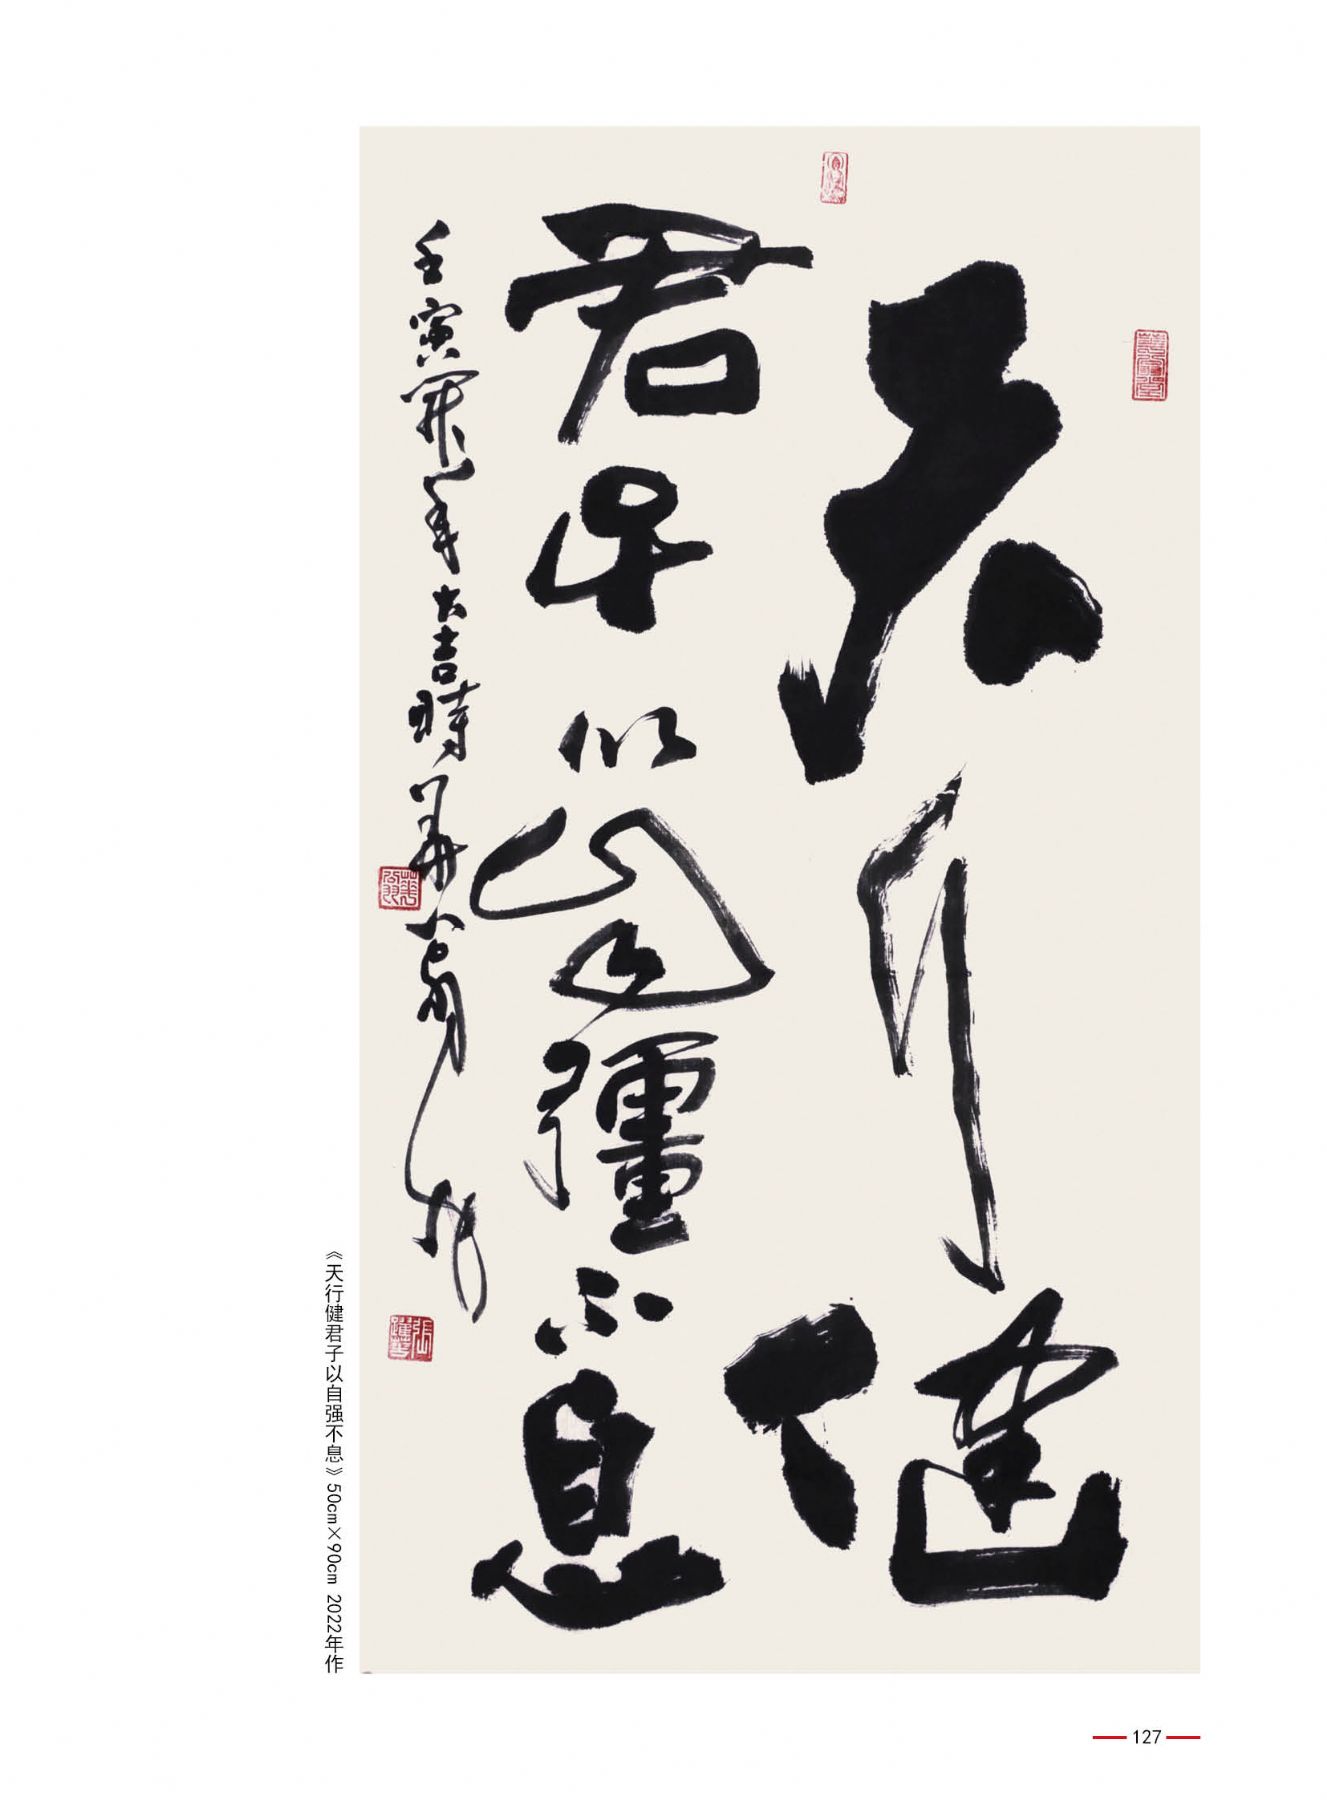 天行健
君子以自彊不息
壬寅開年大吉時華翁書
《天行健君子以自强不息》50cm×90cm 2022年作
127